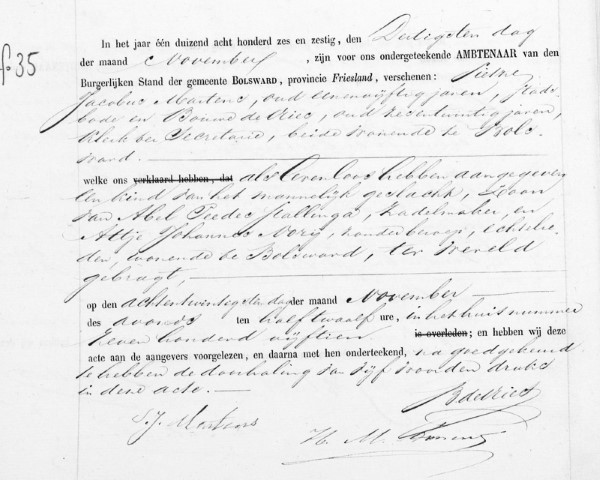 fo 35
In het jaar één duizend acht honderd zes en zestig, den Dertigsten dag
der maand November, zijn voor ons ondergeteekende AMBTENAAR van den
Burgerlijken Stand der gemeente BOLSWARD, provincie Friesland, verschenen: Sietze
Jacobus Martens, oud eenenvijftig jaren, Stads-
bode en Bouwe de Vries, oud zevenentwintig jaren,
Klerk ter Secretarie, beide wonende te Bols-
ward.
welke ons verklaard hebben, dat als levenloos hebben aangegeven
een kind van het mannelijk geslacht, Zoon
van Abel Stallinga, Zadelmaker, en
Attje Johannes, zonder beroep, echtelie-
den, wonende te Bolsward, ter wereld
gebragt,
op den achtentwintigsten dag der maand November
des avonds ten half twaalf ure, in het huis nummer
Zeven honderd vijftien is overleden; en hebben wij deze
acte aan de aangevers voorgelezen, en daarna met hen onderteekend, na goedgekeurd
te hebben de doorhaling van vijf woorden druks
in deze acte.
B de Vries
S. J. Martens
H. M.